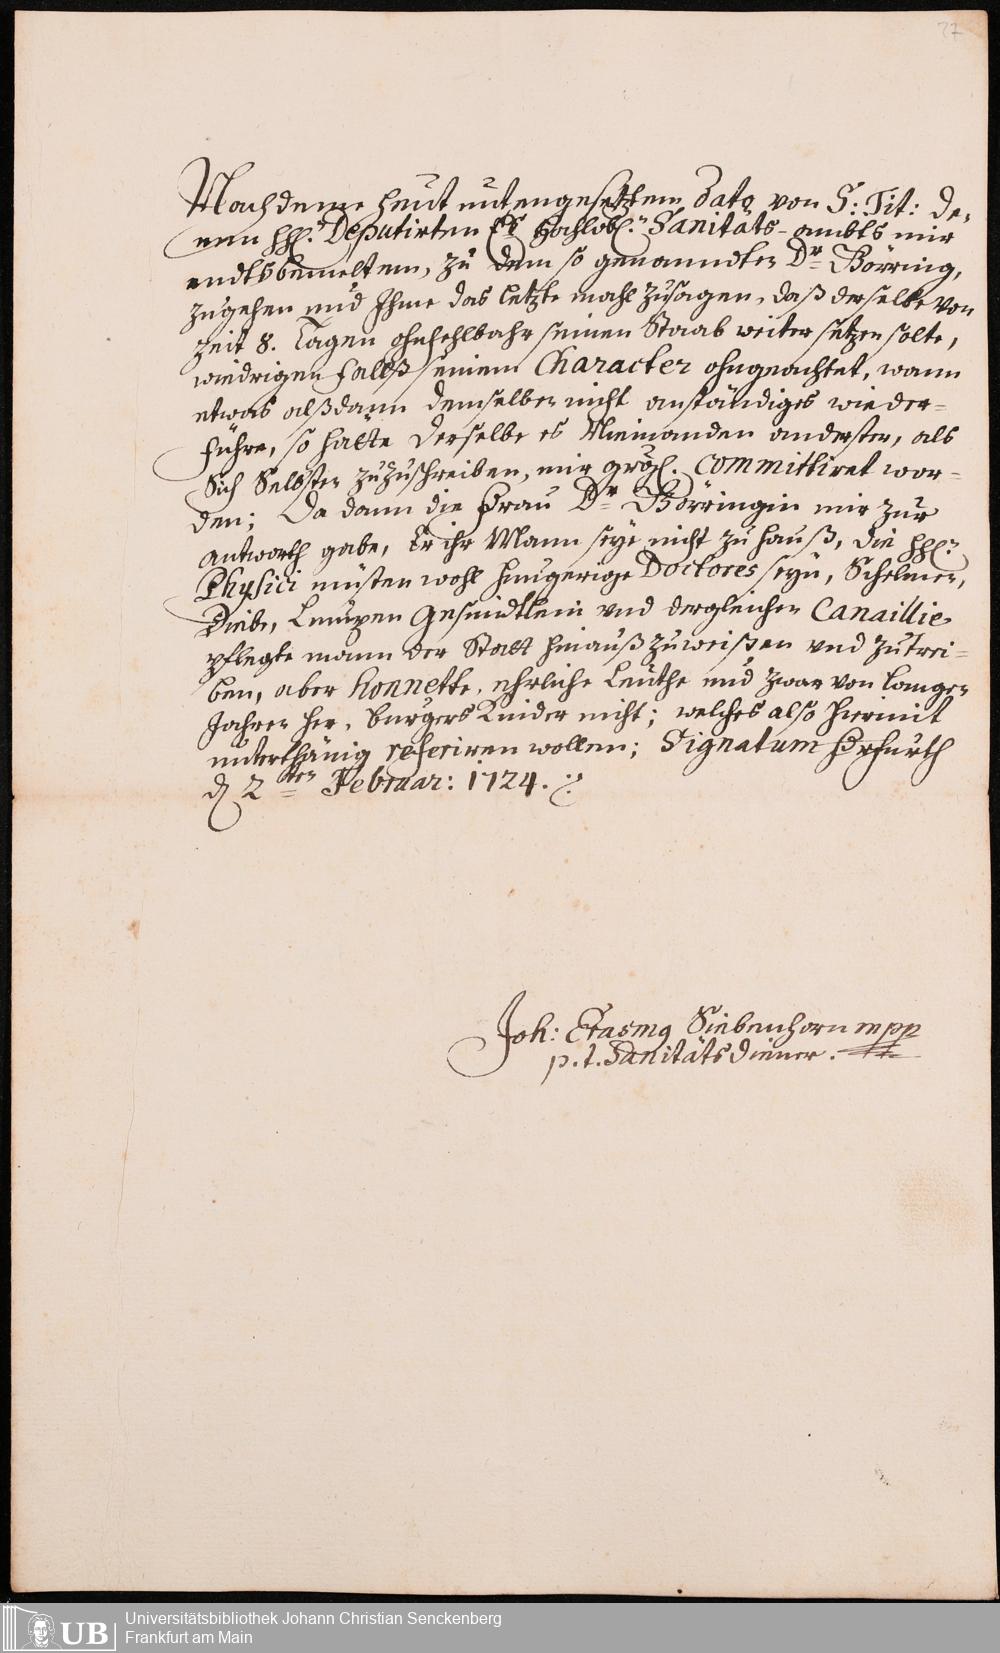 77
Nachdeme heut untengesetztem Dato von S: Tit: de-
nen hhl: Deputirten Es Hochlöbl: Sanitäts-ambts mir
endtsbemeltem, zu dem so genanndten Dr Börring,
zugehen und Ihme das letzte mahl zusagen, daß derselbe von
Zeit 8. Tagen ohnfehlbahr seinen Staab weiter setzen solte,
wiedrigen fallß seinem Character ohngeachtet, wann
etwas alßdann demselben nicht anständiges wieder=
führe, so hätte derselbe es Niemanden anderster, als
Sich Selbsten zuzuschreiben, mir committiret wor=
den; Da dann die Frau Dr Börringin mir zur
antworth gabe, Er ihr Mann seye nicht zu hauß, die hhl:
Physici müsten wohl hungerige Doctores seyn, Schelmen,
Diebe, Lumpen Gesindtlein und dergleichen Canaillie
pflegte mann der Statt hinauß zuweißen und zutrei=
ben, aber honnette, ehrliche Leuthe und zwar von langen
Jahren her, burgers Kinder nicht; welches also hiermit
unterthänig referiren wollen; Signatum
d 2ten Februar: 1724.
Joh: Erasmg Siebenhorn mpp
p.t. Sanitäts diener.
UB
Universitätsbibliothek Johann Christian Senckenberg
Frankfurt am Main